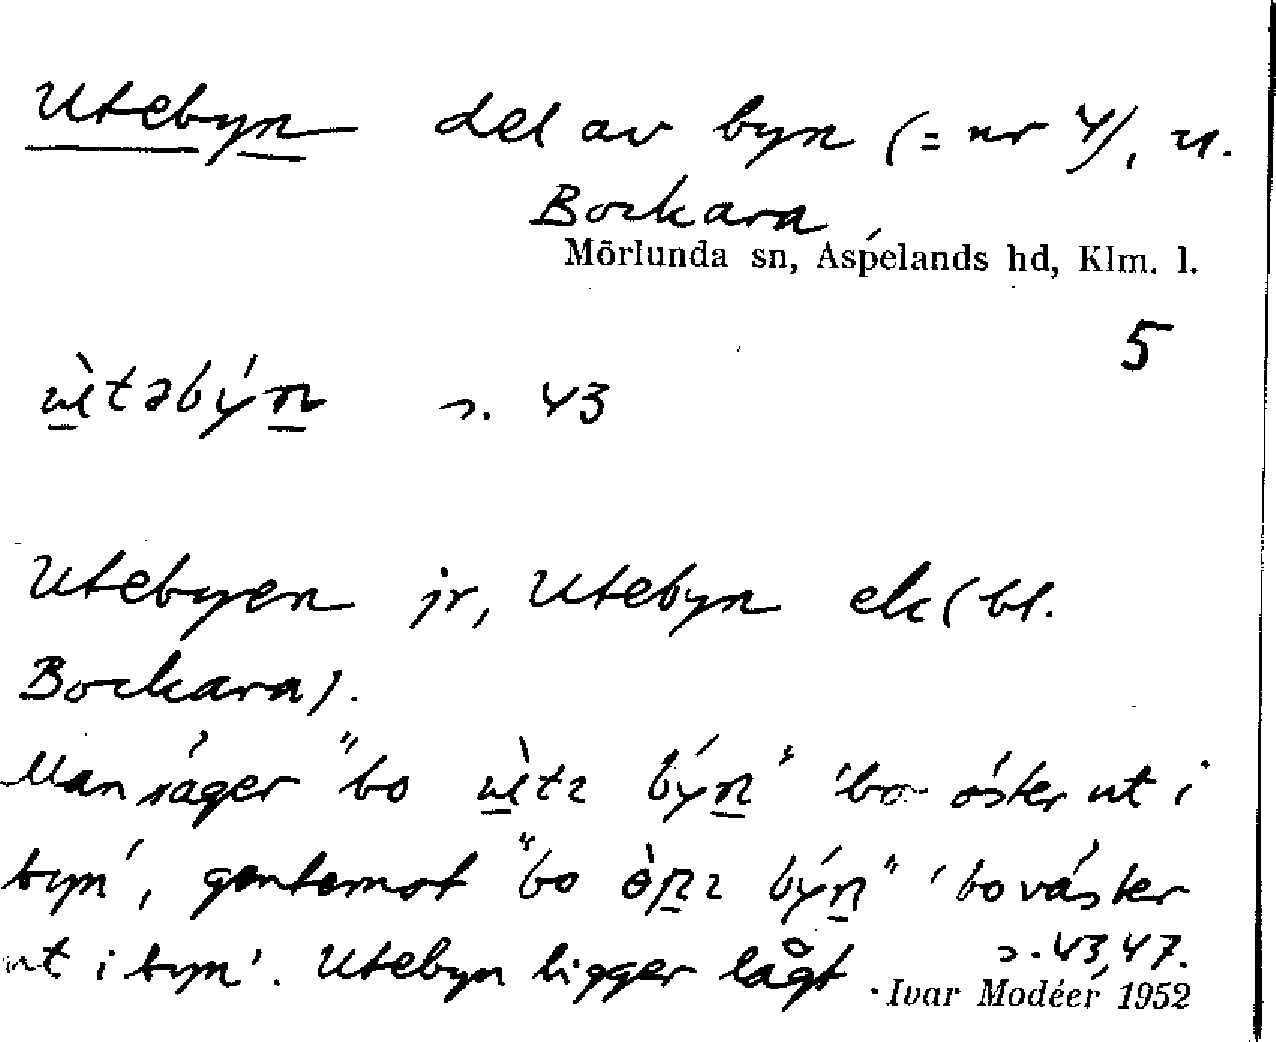 Utebyn del av byn (= nr 4), u.
Bockara
Mörlunda sn, Aspelands hd, Klm. l.
5
ùtəbýn s. 43
Utebyen jr, Utebyn ek (bl.
Bockara).
Man säger "bo ùtɪ býn" 'bo öster ut i
byn', gentemot "bo òpɪ býn" 'bo väster
ut i byn'. Utebyn ligger lågt s. 43, 47.
Ivar Modéer 1952